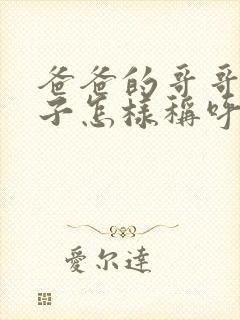 爸爸的哥哥
子怎樣稱呼
愛尔達